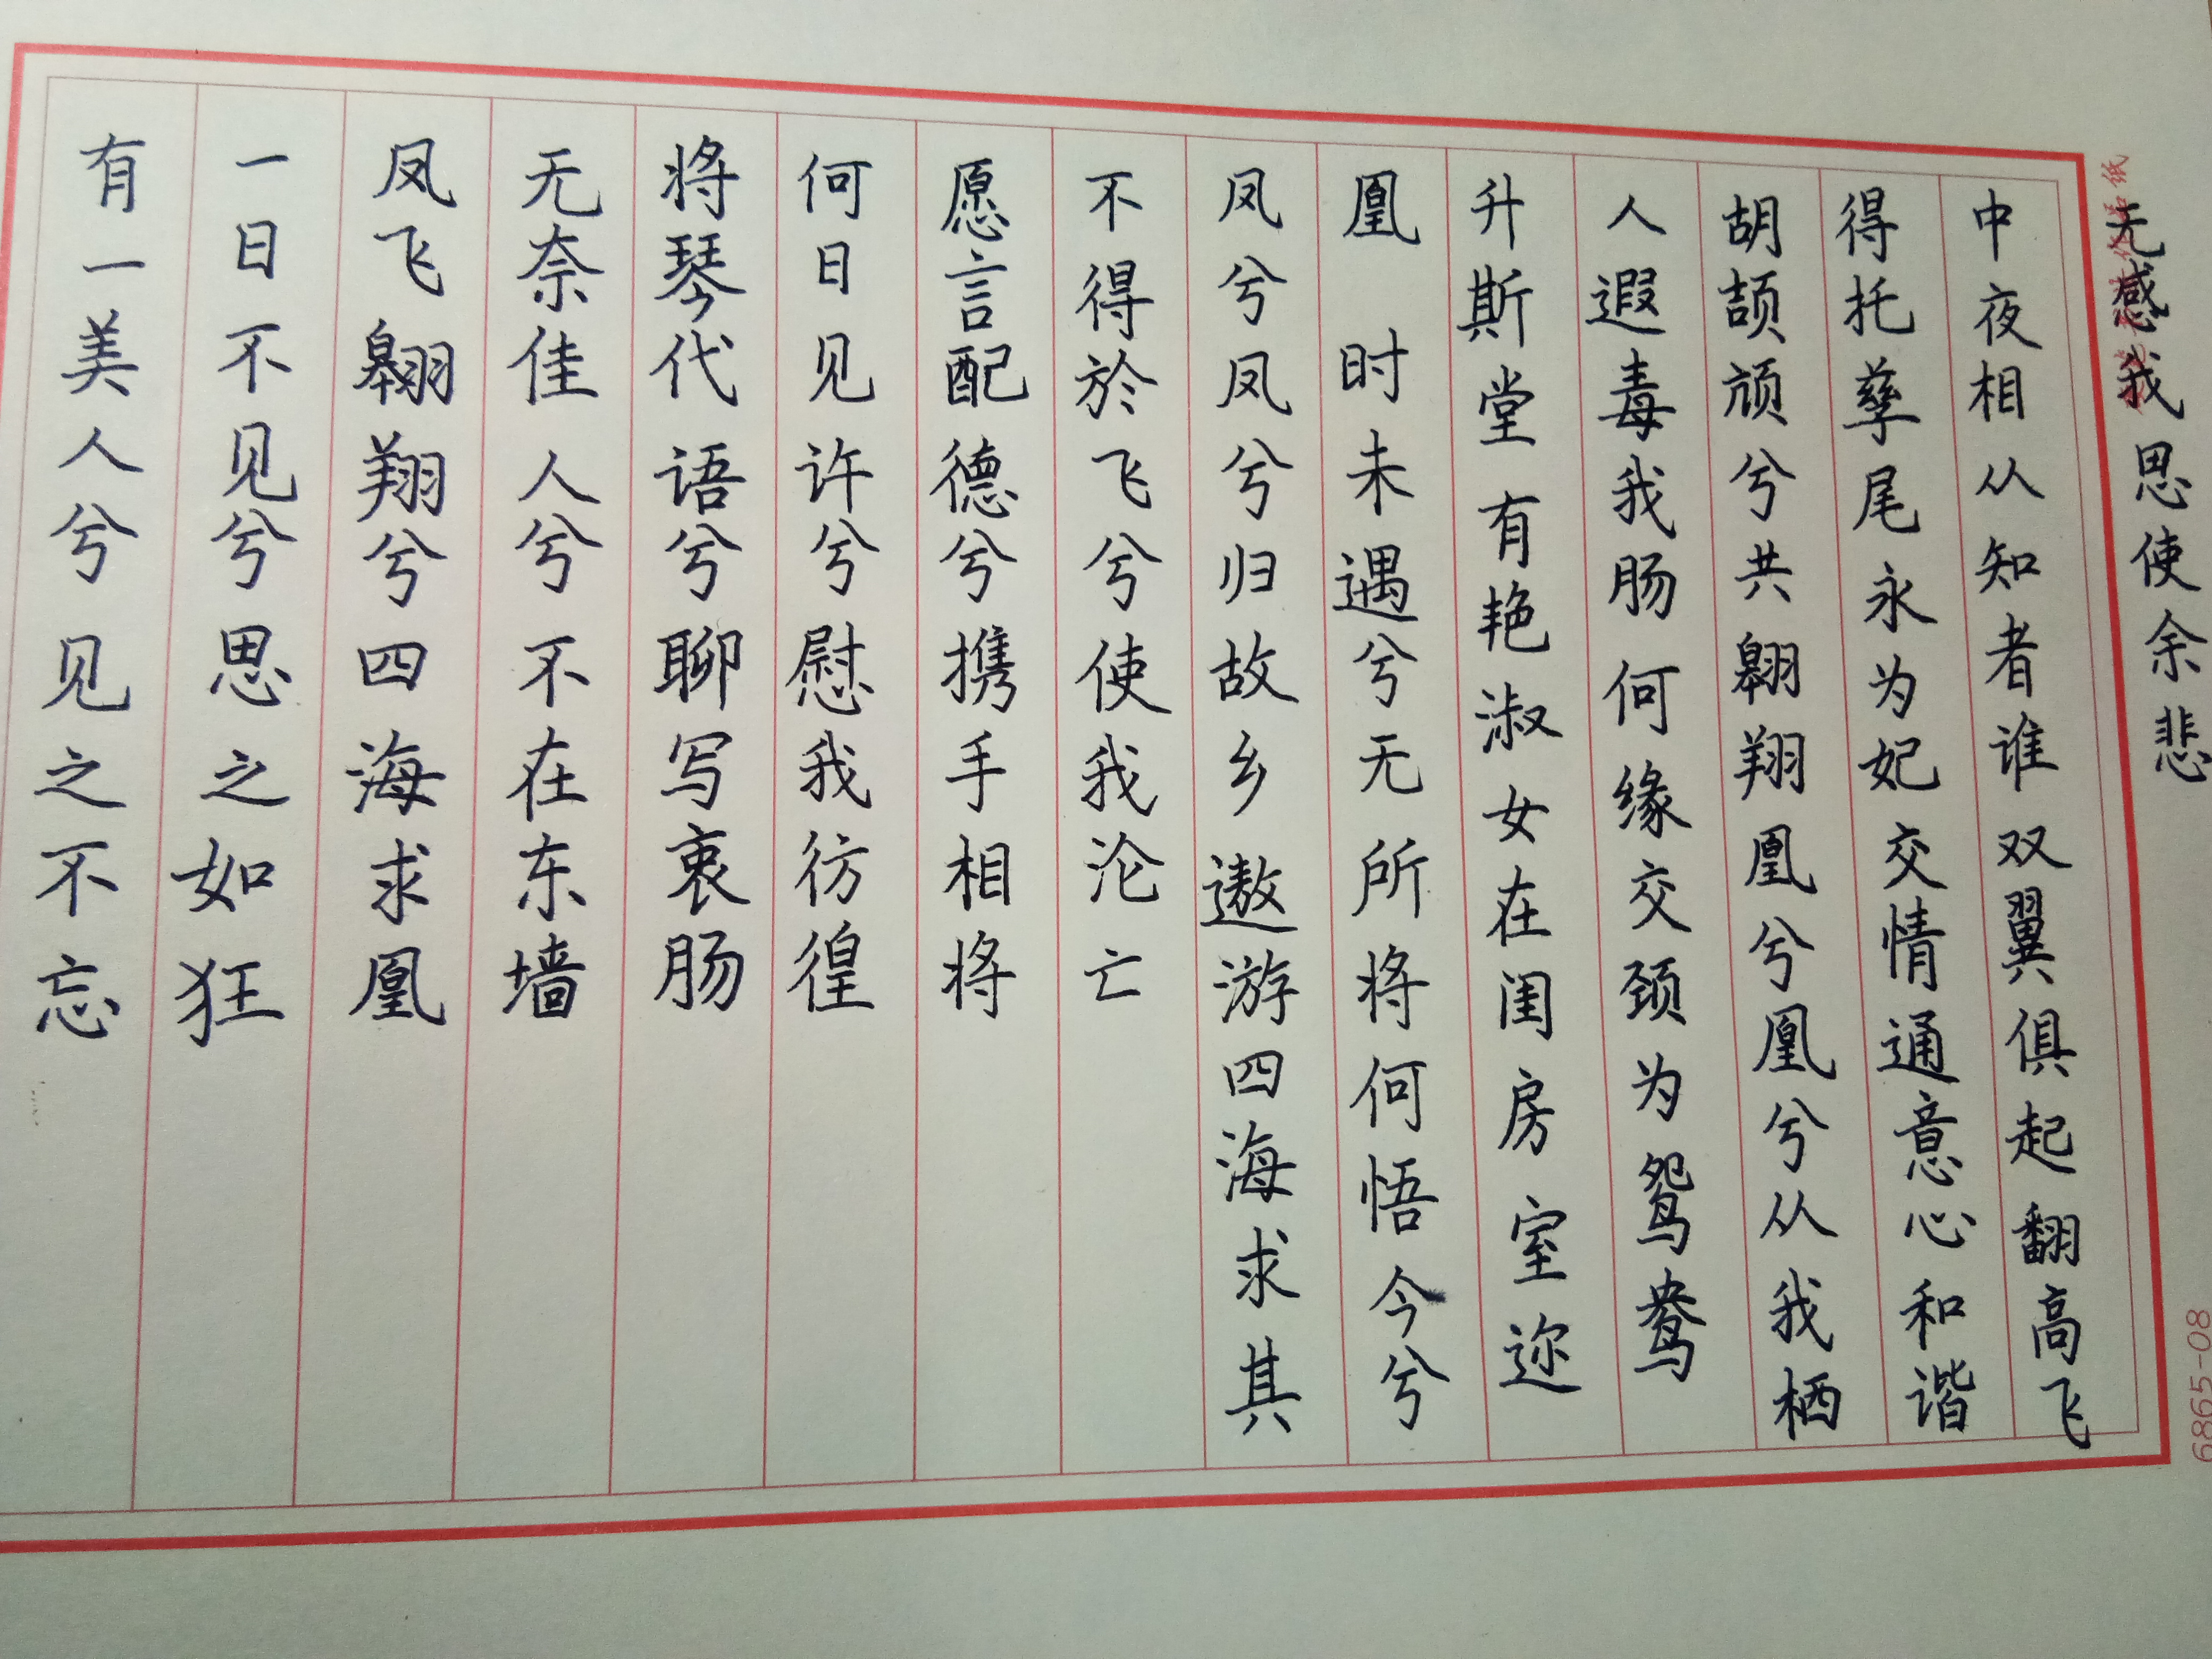 有一美人兮见之不忘
一日不见兮思之如狂
凤飞翱翔兮四海求凰
无奈佳人兮不在东墙
将琴代语兮聊写衷肠
何日见许兮慰我彷徨
愿言配德兮携手相将
不得於飞兮使我沦亡
凤兮凤兮归故乡遨游四海求其
凰 时未遇兮无所将何悟今兮
升斯堂有艳淑女在闺房室迩
人遐毒我肠何缘交颈为鸳鸯
胡颉颃兮共翱翔凰兮凰兮从我栖
得托孳尾永为妃交情通意心和谐
中夜相从知者谁双翼俱起翻高飞
无感我思使余悲
6865-08